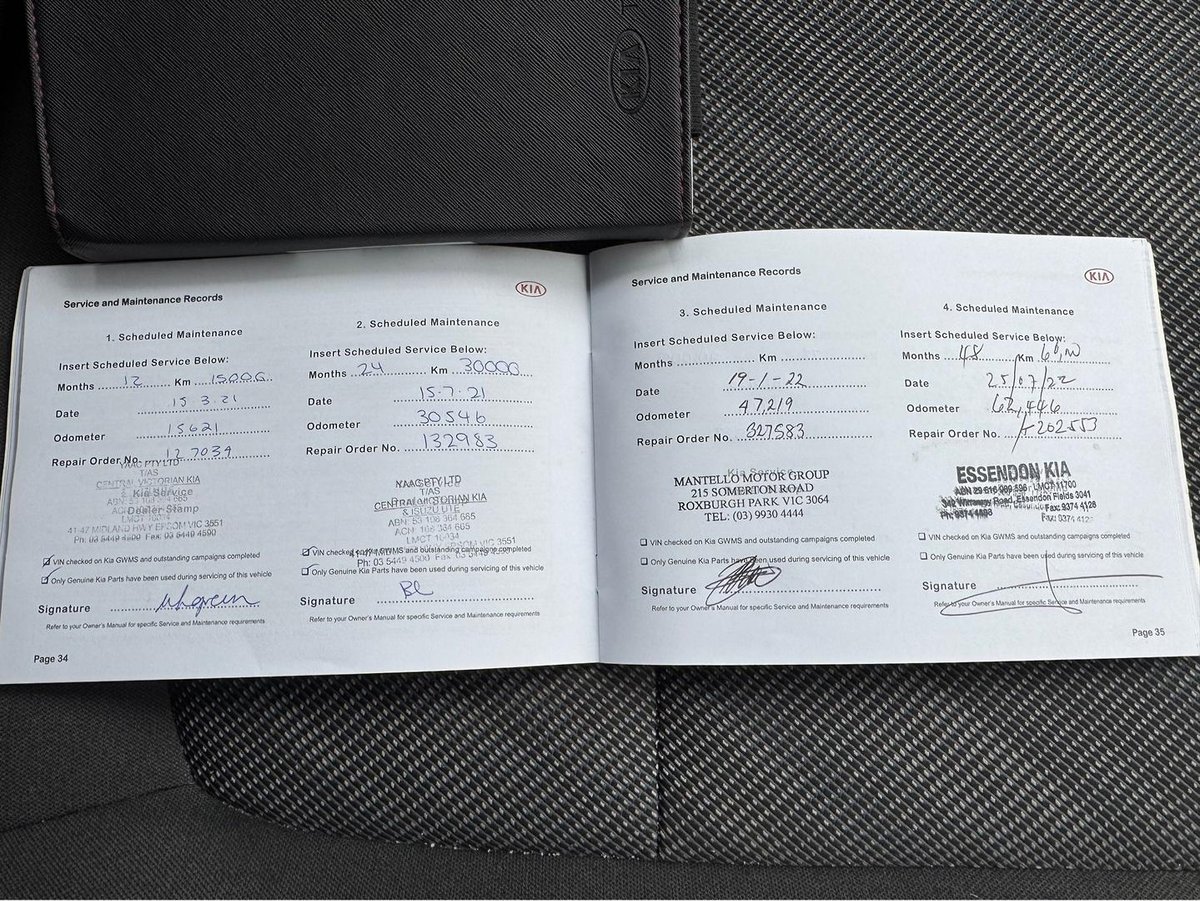 KIA
Service and Maintenance Records
KIA
1. Scheduled Maintenance
Insert Scheduled Service Below:
Months 12 Km 15000
Date 15 3 21
Odometer 15621
Repair Order No. 127039
YAAC PTY LTD
T/AS
CENTRAL VICTORIAN KIA
Kia Service
Dealer Stamp
41-47 MIDLAND HWY EPSOM VIC 3551
Ph: 03 5449 4500 Fax: 03 5449 4590
VIN checked on Kia GWMS and outstanding campaigns completed
Only Genuine Kia Parts have been used during servicing of this vehicle
Signature
Refer to your Owner's Manual for specific Service and Maintenance requirements
Page 34
2. Scheduled Maintenance
Insert Scheduled Service Below:
Months 24 Km 30000
Date 15-7-21
Odometer 30546
Repair Order No. 132983
YAAC PTY LTD
T/AS
CENTRAL VICTORIAN KIA
& ISUZU UTE
VIN checked on Kia GWMS and outstanding campaigns completed
Only Genuine Kia Parts have been used during servicing of this vehicle
Signature
Refer to your Owner's Manual for specific Service and Maintenance requirements
Service and Maintenance Records
KIA
3. Scheduled Maintenance
Insert Scheduled Service Below:
Months Km
Date 19-1-22
Odometer 47,219
Repair Order No. 327583
Kia Service
MANTELLO MOTOR GROUP
215 SOMERTON ROAD
ROXBURGH PARK VIC 3064
TEL: (03) 9930 4444
VIN checked on Kia GWMS and outstanding campaigns completed
Only Genuine Kia Parts have been used during servicing of this vehicle
Signature
Refer to your Owner's Manual for specific Service and Maintenance requirements
4. Scheduled Maintenance
Insert Scheduled Service Below:
Months 48 Km
Date 25/07/22
Odometer 62,446
Repair Order No. 202553
ESSENDON KIA
LMCT 11700
Essendon Fields 3041
Fax: 9374 4128
VIN checked on Kia GWMS and outstanding campaigns completed
Only Genuine Kia Parts have been used during servicing of this vehicle
Signature
Refer to your Owner's Manual for specific Service and Maintenance requirements
Page 35